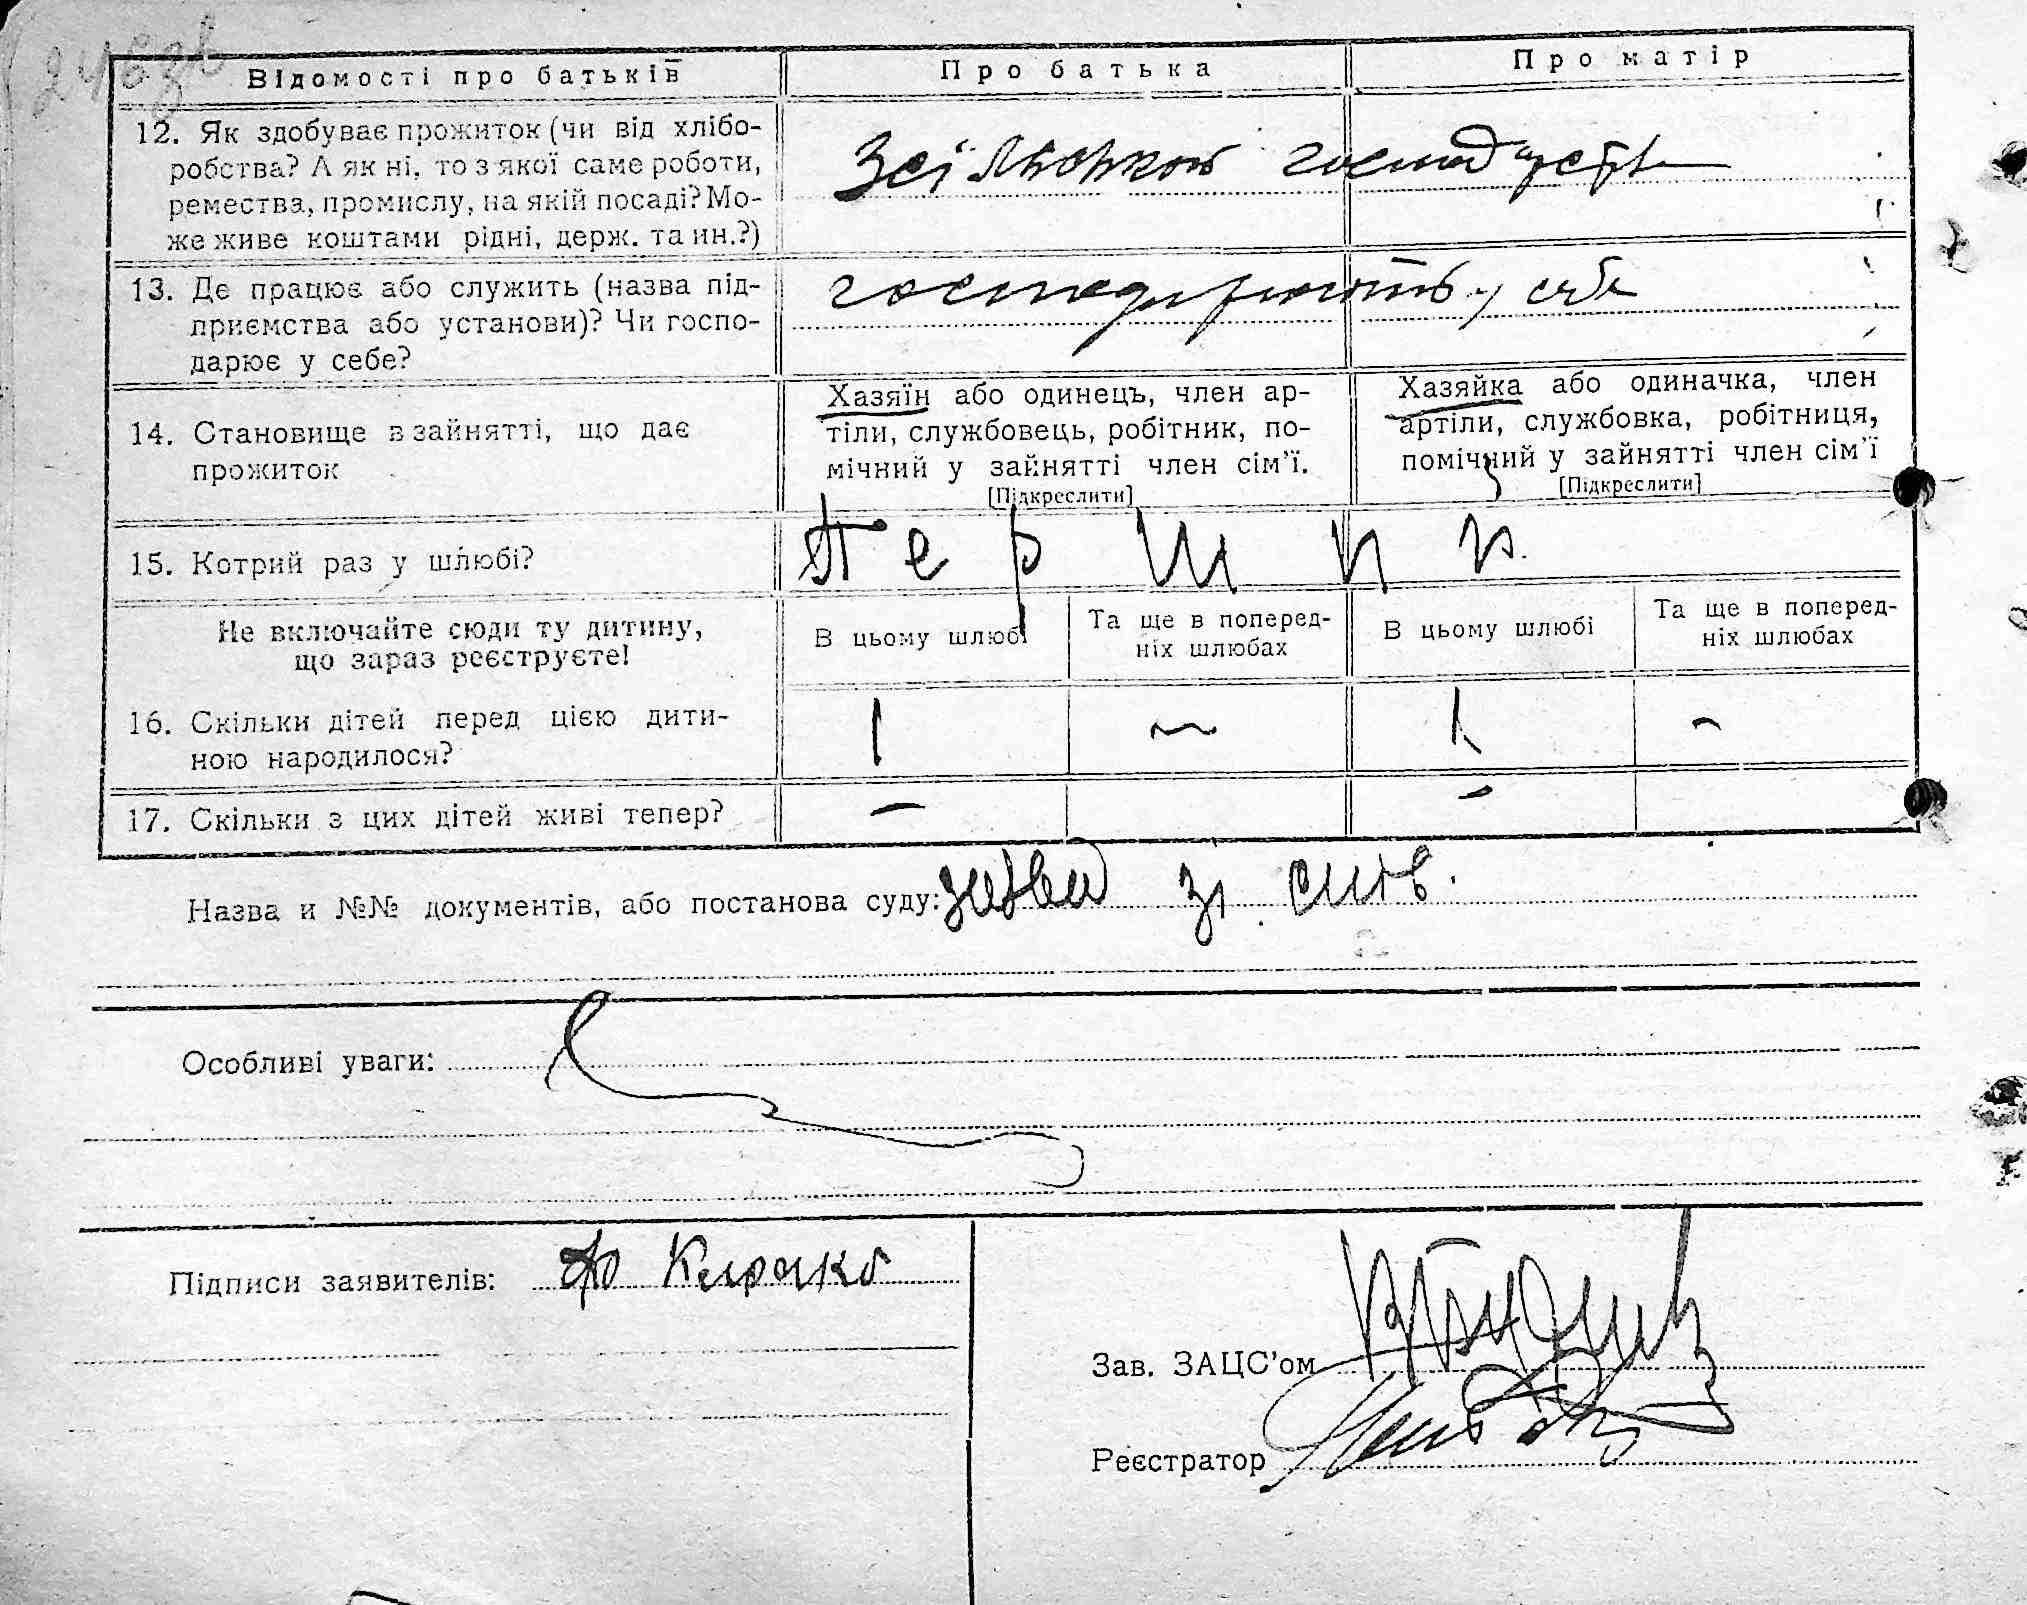 246зв
Відомості про батьків
Про батька
Про матір
12. Як здобуває прожиток (чи від хлібо-
робства? А як ні, то з якої саме роботи,
ремества, промислу, на якій посаді? Мо-
же живе коштами рідні, держ. та ин.?)
господарства
13. Де працює або служить (назва під-
приємства або установи)? Чи госпо-
дарює у себе?
господарюють у себе
14. Становище в зайнятті, що дає
прожиток
Хазяїн або одинець, член ар-
тіли, службовець, робітник, по-
мічний у зайнятті член сім'ї.
[Підкреслити]
Хазяйка або одиначка, член
артіли, службовка, робітниця,
помічний у зайнятті член сім'ї
[Підкреслити]
15. Котрий раз у шлюбі?
Не включайте сюди ту дитину,
що зараз реєструєте!
В цьому шлюбі
Та ще в поперед-
ніх шлюбах
В цьому шлюбі
Та ще в поперед-
ніх шлюбах
16. Скільки дітей перед цією дити-
ною народилося?
1 — 1 —
17. Скільки з цих дітей живі тепер?
— —
Назва и №№ документів, або постанова суду:
Особливі уваги:
Підписи заявителів:
Зав. ЗАЦС'ом
Реєстратор